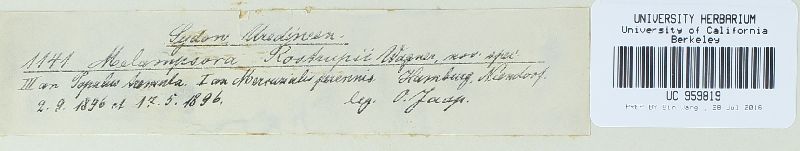 Sydow, Uredineen.
1141 Melampsora Rostrupii Wagner, nov. spec.
III an Populus tremula. I an Mercurialis perennis. Hamburg, Niendorf.
2. 9. 1896 et 17. 5. 1896. leg. O. Jaap.
UNIVERSITY HERBARIUM
University of California
Berkeley
UC 959819
28 Jul 2016